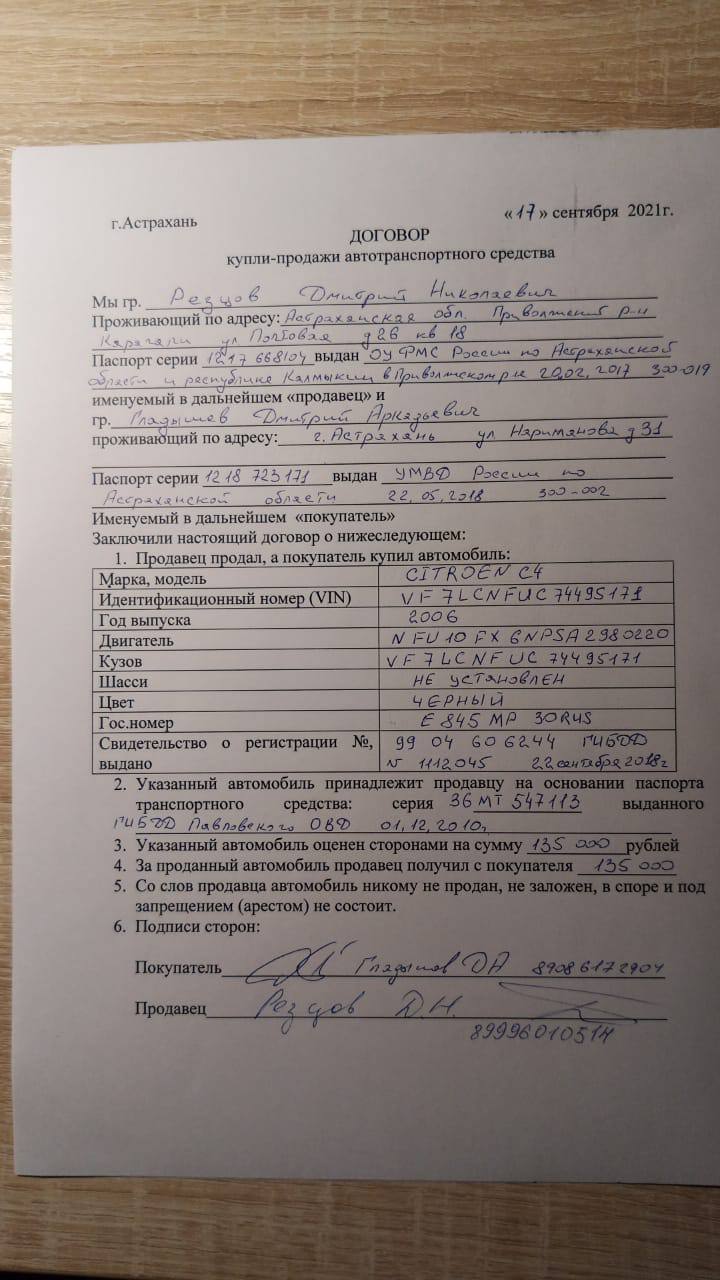 г.Астрахань «17» сентября 2021г.
ДОГОВОР
купли-продажи автотранспортного средства
Мы гр. Резцов Дмитрий Николаевич
Проживающий по адресу: Астраханская обл. Приволжский р-н
Карагали ул Почтовая д 26 кв 18
Паспорт серии 1217 668104 выдан ОУФМС России по Астраханской
области и республике Калмыкии в Приволжском р-не 20,02,2017 300-019
именуемый в дальнейшем «продавец» и
гр. Гладышев Дмитрий Аркадьевич
проживающий по адресу: г. Астрахань ул Нариманова д 31
Паспорт серии 1218 723171 выдан УМВД России по
Астраханской области 22,05,2018 300-002
Именуемый в дальнейшем «покупатель»
Заключили настоящий договор о нижеследующем:
1. Продавец продал, а покупатель купил автомобиль:
Марка, модель CITROEN C4
Идентификационный номер (VIN) VF7LCNFUC74495171
Год выпуска 2006
Двигатель NFU10FX6NPSA2980220
Кузов VF7LCNFUC74495171
Шасси НЕ УСТАНОВЛЕН
Цвет ЧЕРНЫЙ
Гос.номер Е 845 МР 30RUS
Свидетельство о регистрации №, 99 04 606244 ГИБДД
выдано N 1112045 22 сентября 2018г
2. Указанный автомобиль принадлежит продавцу на основании паспорта
транспортного средства: серия 36 МТ 547113 выданного
ГИБДД Павловского ОВД 01,12,2010г
3. Указанный автомобиль оценен сторонами на сумму 135 000 рублей
4. За проданный автомобиль продавец получил с покупателя 135 000
5. Со слов продавца автомобиль никому не продан, не заложен, в споре и под
запрещением (арестом) не состоит.
6. Подписи сторон:
Покупатель Гладышев ДА 89086172904
Продавец Резцов Д.Н.
89996010514